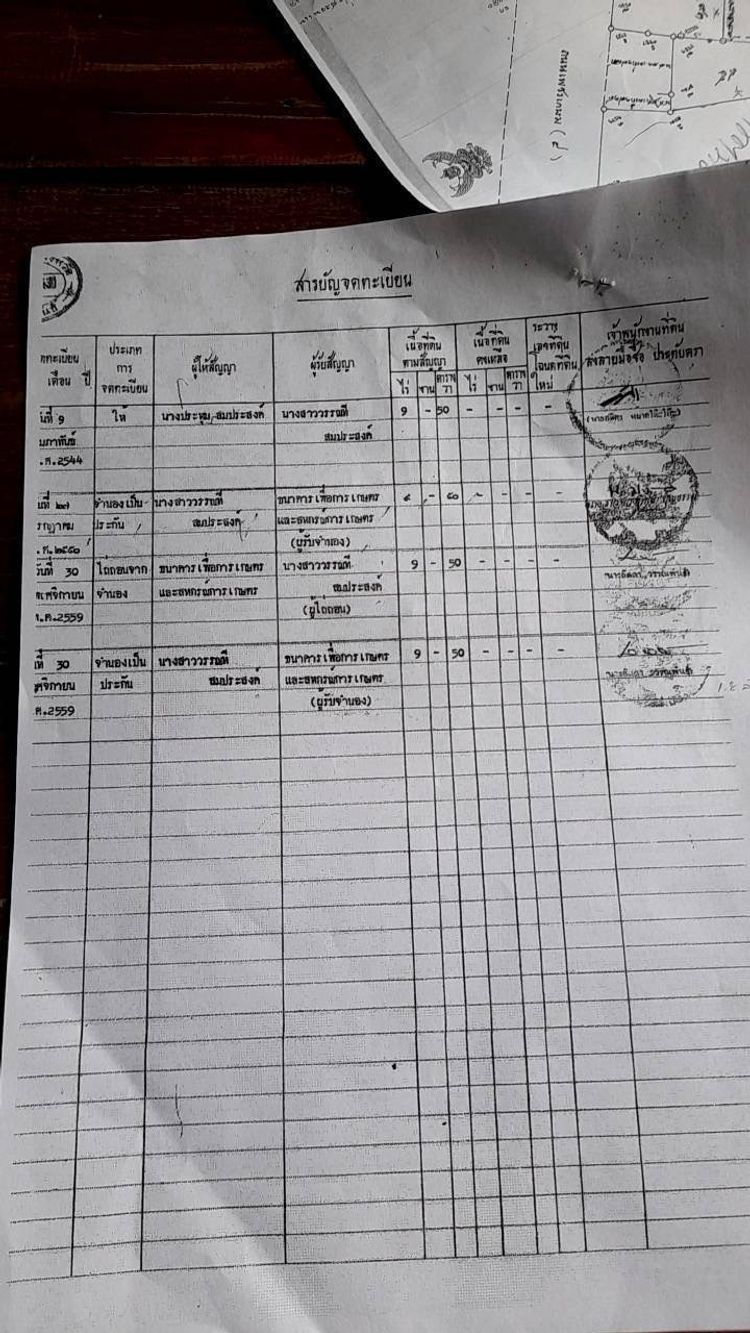 ถนนเพชรเกษม (
สารบัญจดทะเบียน
ดทะเบียน
เดือน ปี
ประเภท
การ
จดทะเบียน
ผู้ให้สัญญา
ผู้รับสัญญา
เนื้อที่ดิน
ตามสัญญา
ไร่ งาน ตาราง
วา
เนื้อที่ดิน
คงเหลือ
ไร่ งาน ตาราง
วา
ระวาง
เลขที่ดิน
โฉนดที่ดิน
ใหม่
เจ้าพนักงานที่ดิน
ลงลายมือชื่อ ประทับตรา
นที่ 9 ให้ นางประทุม สมประสงค์ นางสาววรรณที 9 - 50 - - - - -
มภาพันธ์ สมประสงค์
.ศ.2544
นที่ ๒๗ จำนองเป็น นางสาววรรณที ธนาคารเพื่อการเกษตร ๙ - ๕๐ - - - -
รกฎาคม ประกัน สมประสงค์ และสหกรณ์การเกษตร
.ศ.๒๕๕๐ (ผู้รับจำนอง)
วันที่ 30 ไถ่ถอนจาก ธนาคารเพื่อการเกษตร นางสาววรรณที 9 - 50 - - - - -
ฤศจิกายน จำนอง และสหกรณ์การเกษตร สมประสงค์
.ศ.2559 (ผู้ไถ่ถอน)
ที่ 30 จำนองเป็น นางสาววรรณที ธนาคารเพื่อการเกษตร 9 - 50 - - - - -
ศจิกายน ประกัน สมประสงค์ และสหกรณ์การเกษตร
ศ.2559 (ผู้รับจำนอง)